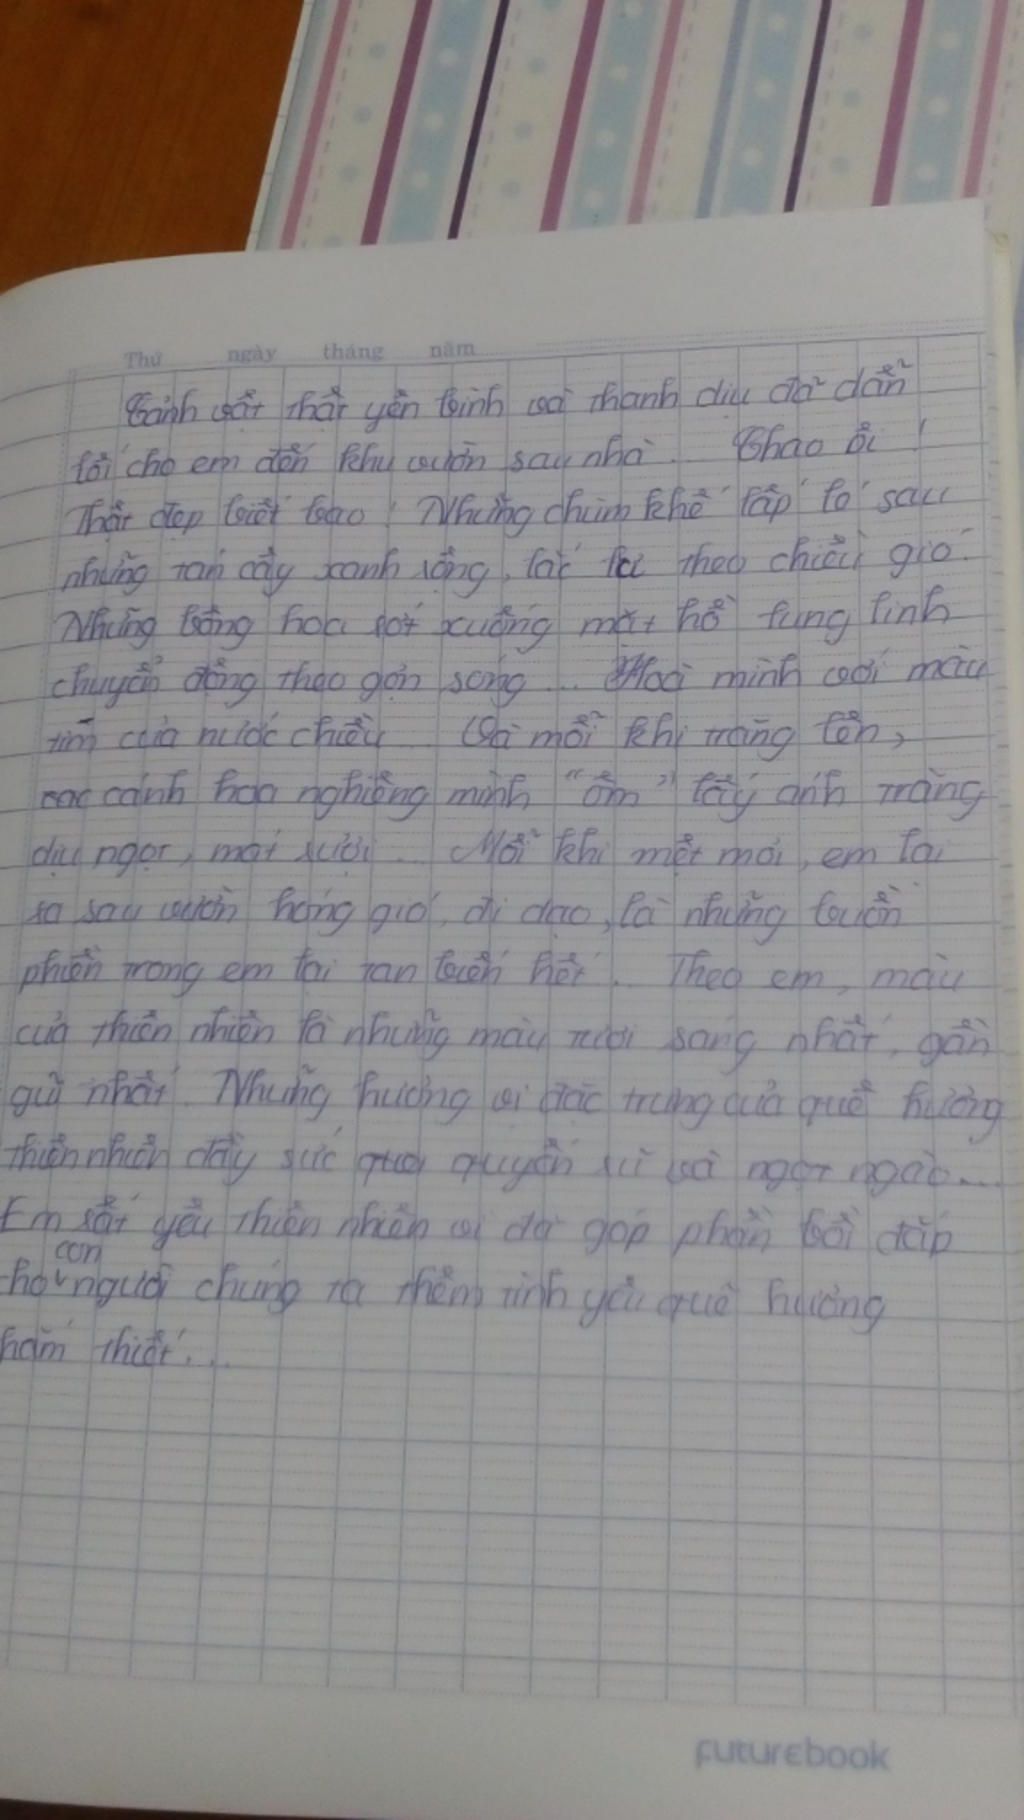 Thứ ngày tháng năm
Cảnh vật thật yên bình và thanh dịu đã dẫn
lối cho em đến khu vườn sau nhà... Chao ôi!
Thật đẹp biết bao! Những chùm khế lấp ló sau
những tán cây xanh rộng, lắc lư theo chiều gió.
Những bông hoa rớt xuống mặt hồ lung linh
chuyển động theo gợn sóng... Hoà mình với màu
tím của nước chiều... Và mỗi khi trăng lên,
các cánh hoa nghiêng mình "ôm" lấy ánh trăng
dịu ngọt, mát rượi... Mỗi khi mệt mỏi, em lại
ra sau vườn hóng gió, đi dạo, là những buồn
phiền trong em lại tan biến hết... Theo em, màu
của thiên nhiên là những màu tươi sáng nhất, gần
gũi nhất. Những hương vị đặc trưng của quê hương
thiên nhiên đầy sức quyến rũ và ngọt ngào...
Em rất yêu thiên nhiên vì đã góp phần bồi đắp
con
cho người chúng ta thêm tình yêu quê hương
thắm thiết...
FUTUREBOOK